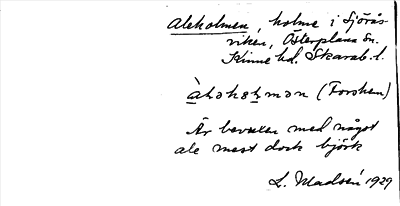 Aleholmen, holme i Sjörås-
viken, Österplana sn.
Kinne hd. Skarab. l.
(Forshem)
Är bevuxen med något
ale mest dock björk
L. Madsén 1929